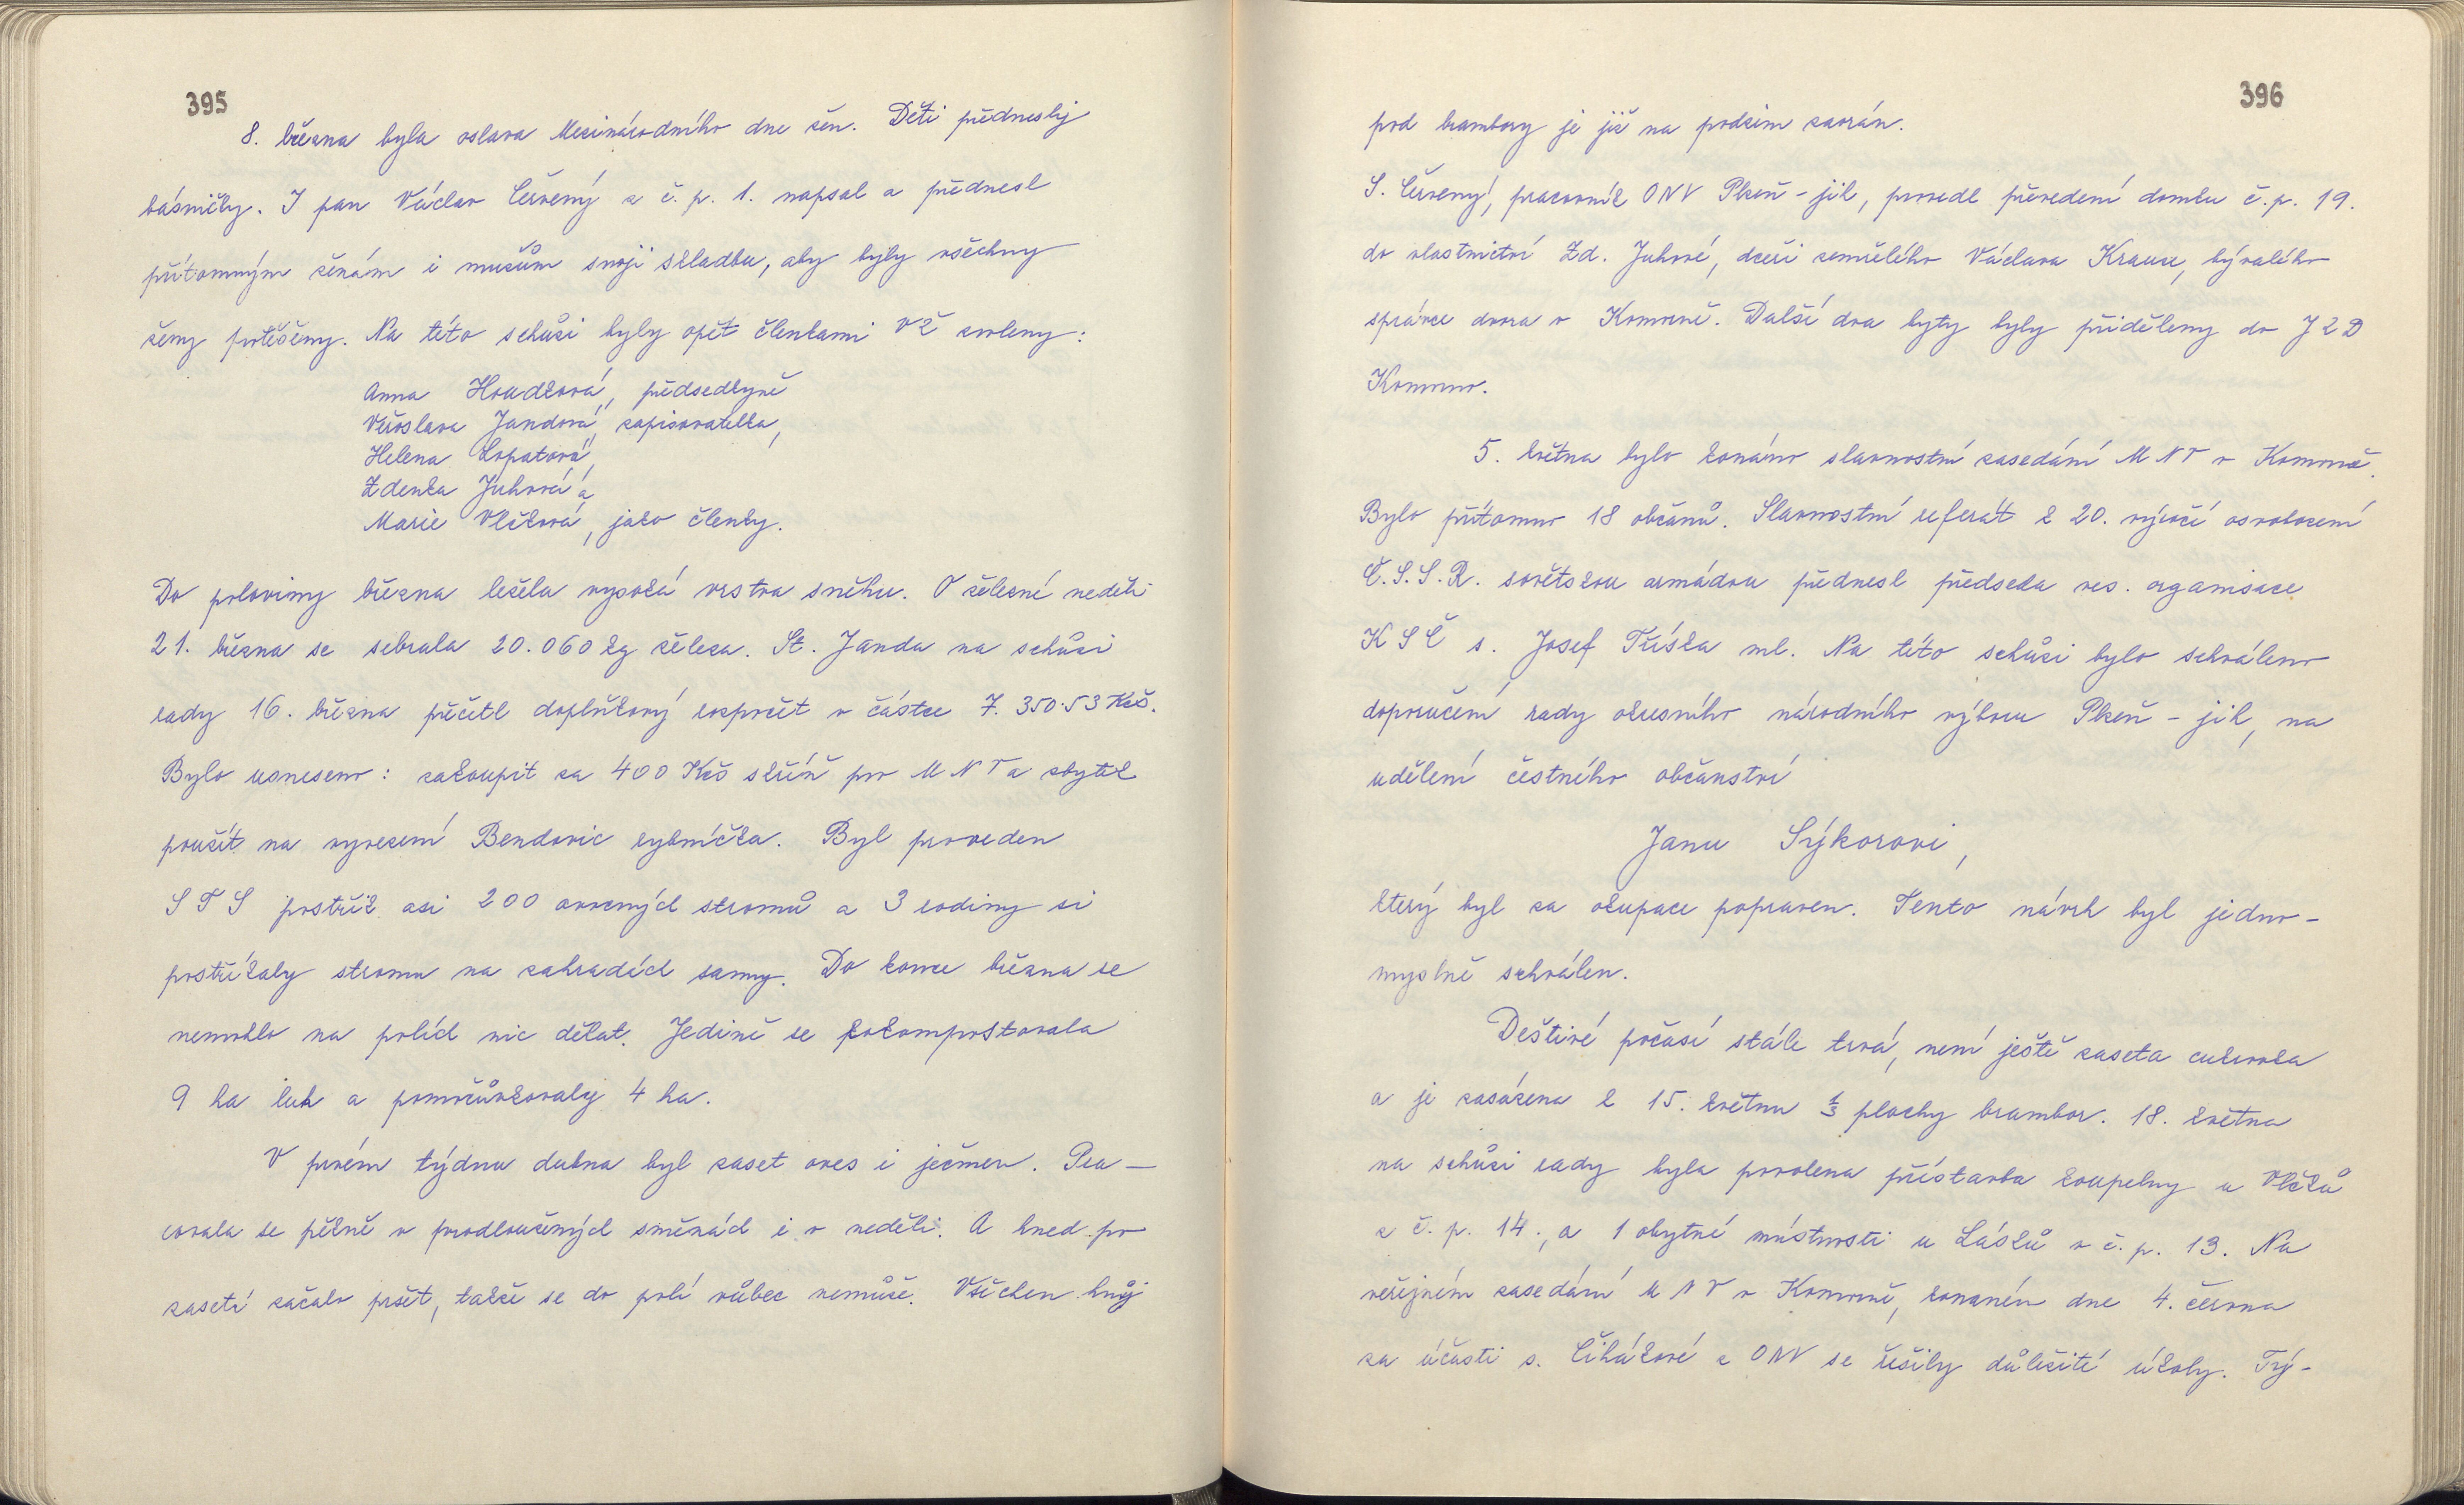 395
8. března byla oslava Mezinárodního dne žen. Děti přednesly
básničky. I pan Václav Červený z č. p. 1. napsal a přednesl
přítomným ženám i mužům svoji skladbu, aby byly všechny
ženy potěšeny. Na této schůzi byly opět členkami VŽ zvoleny:
Anna Houdková, předsedkyně
Věroslava Jandová, zapisovatelka,
Helena Lopatová,
Zdenka Juhová a
Marie Vlčková, jako členky.
Do poloviny března ležela vysoká vrstva sněhu. O železné neděli
21. března se sebralo 20.060 kg železa. St. Janda na schůzi
rady 16. března přečetl doplňkový rozpočet v částce 7.350.53 Kčs.
Bylo usneseno: zakoupit za 400 Kčs skříň pro MNV a zbytek
použít na vyvezení Bendovic rybníčka. Byl proveden
STS postřik asi 200 ovocných stromů a 3 rodiny si
postříkaly stromy na zahradách samy. Do konce března se
nemohlo na polích nic dělat. Jedině se zkompostovala
9 ha luk a pomočůvkovaly 4 ha.
V prvém týdnu dubna byl zaset oves i ječmen. Pra-
covala se pěkně v prodloužených směnách i v neděli. A hned po
zasetí začalo pršet, takže se do polí vůbec nemůže. Všechen hnůj
396
pod brambory je již na podzim zaorán.
S. Červený, pracovník ONV Plzeň-jih, provedl převedení domku č.p. 19.
do vlastnictví Zd. Juhové, dceři zemřelého Václava Krause, bývalého
správce dvora v Komorně. Další dva byty byly přiděleny do JZD
Komorno.
5. května bylo konáno slavnostní zasedání MNV v Komorně.
Bylo přítomno 18 občanů. Slavnostní referát k 20. výročí osvobození
Č.S.S.R. sovětskou armádou přednesl předseda ves. organisace
KSČ s. Josef Tříska ml. Na této schůzi bylo schváleno
doporučení rady okresního národního výboru Plzeň-jih, na
udělení čestného občanství
Janu Sýkorovi,
který byl za okupace popraven. Tento návrh byl jedno-
myslně schválen.
Deštivé počasí stále trvá, není ještě zaseta cukrovka
a je zasázena k 15. květnu 1/3 plochy brambor. 18. května
na schůzi rady byla povolena přístavba koupelny u Vlčků
z č. p. 14., a 1 obytné místnosti u Lásků v č. p. 13. Na
veřejném zasedání MNV v Komorně, konaném dne 4. června
za účasti s. Čihákové z ONV se řešily důležité úkoly. Tý-